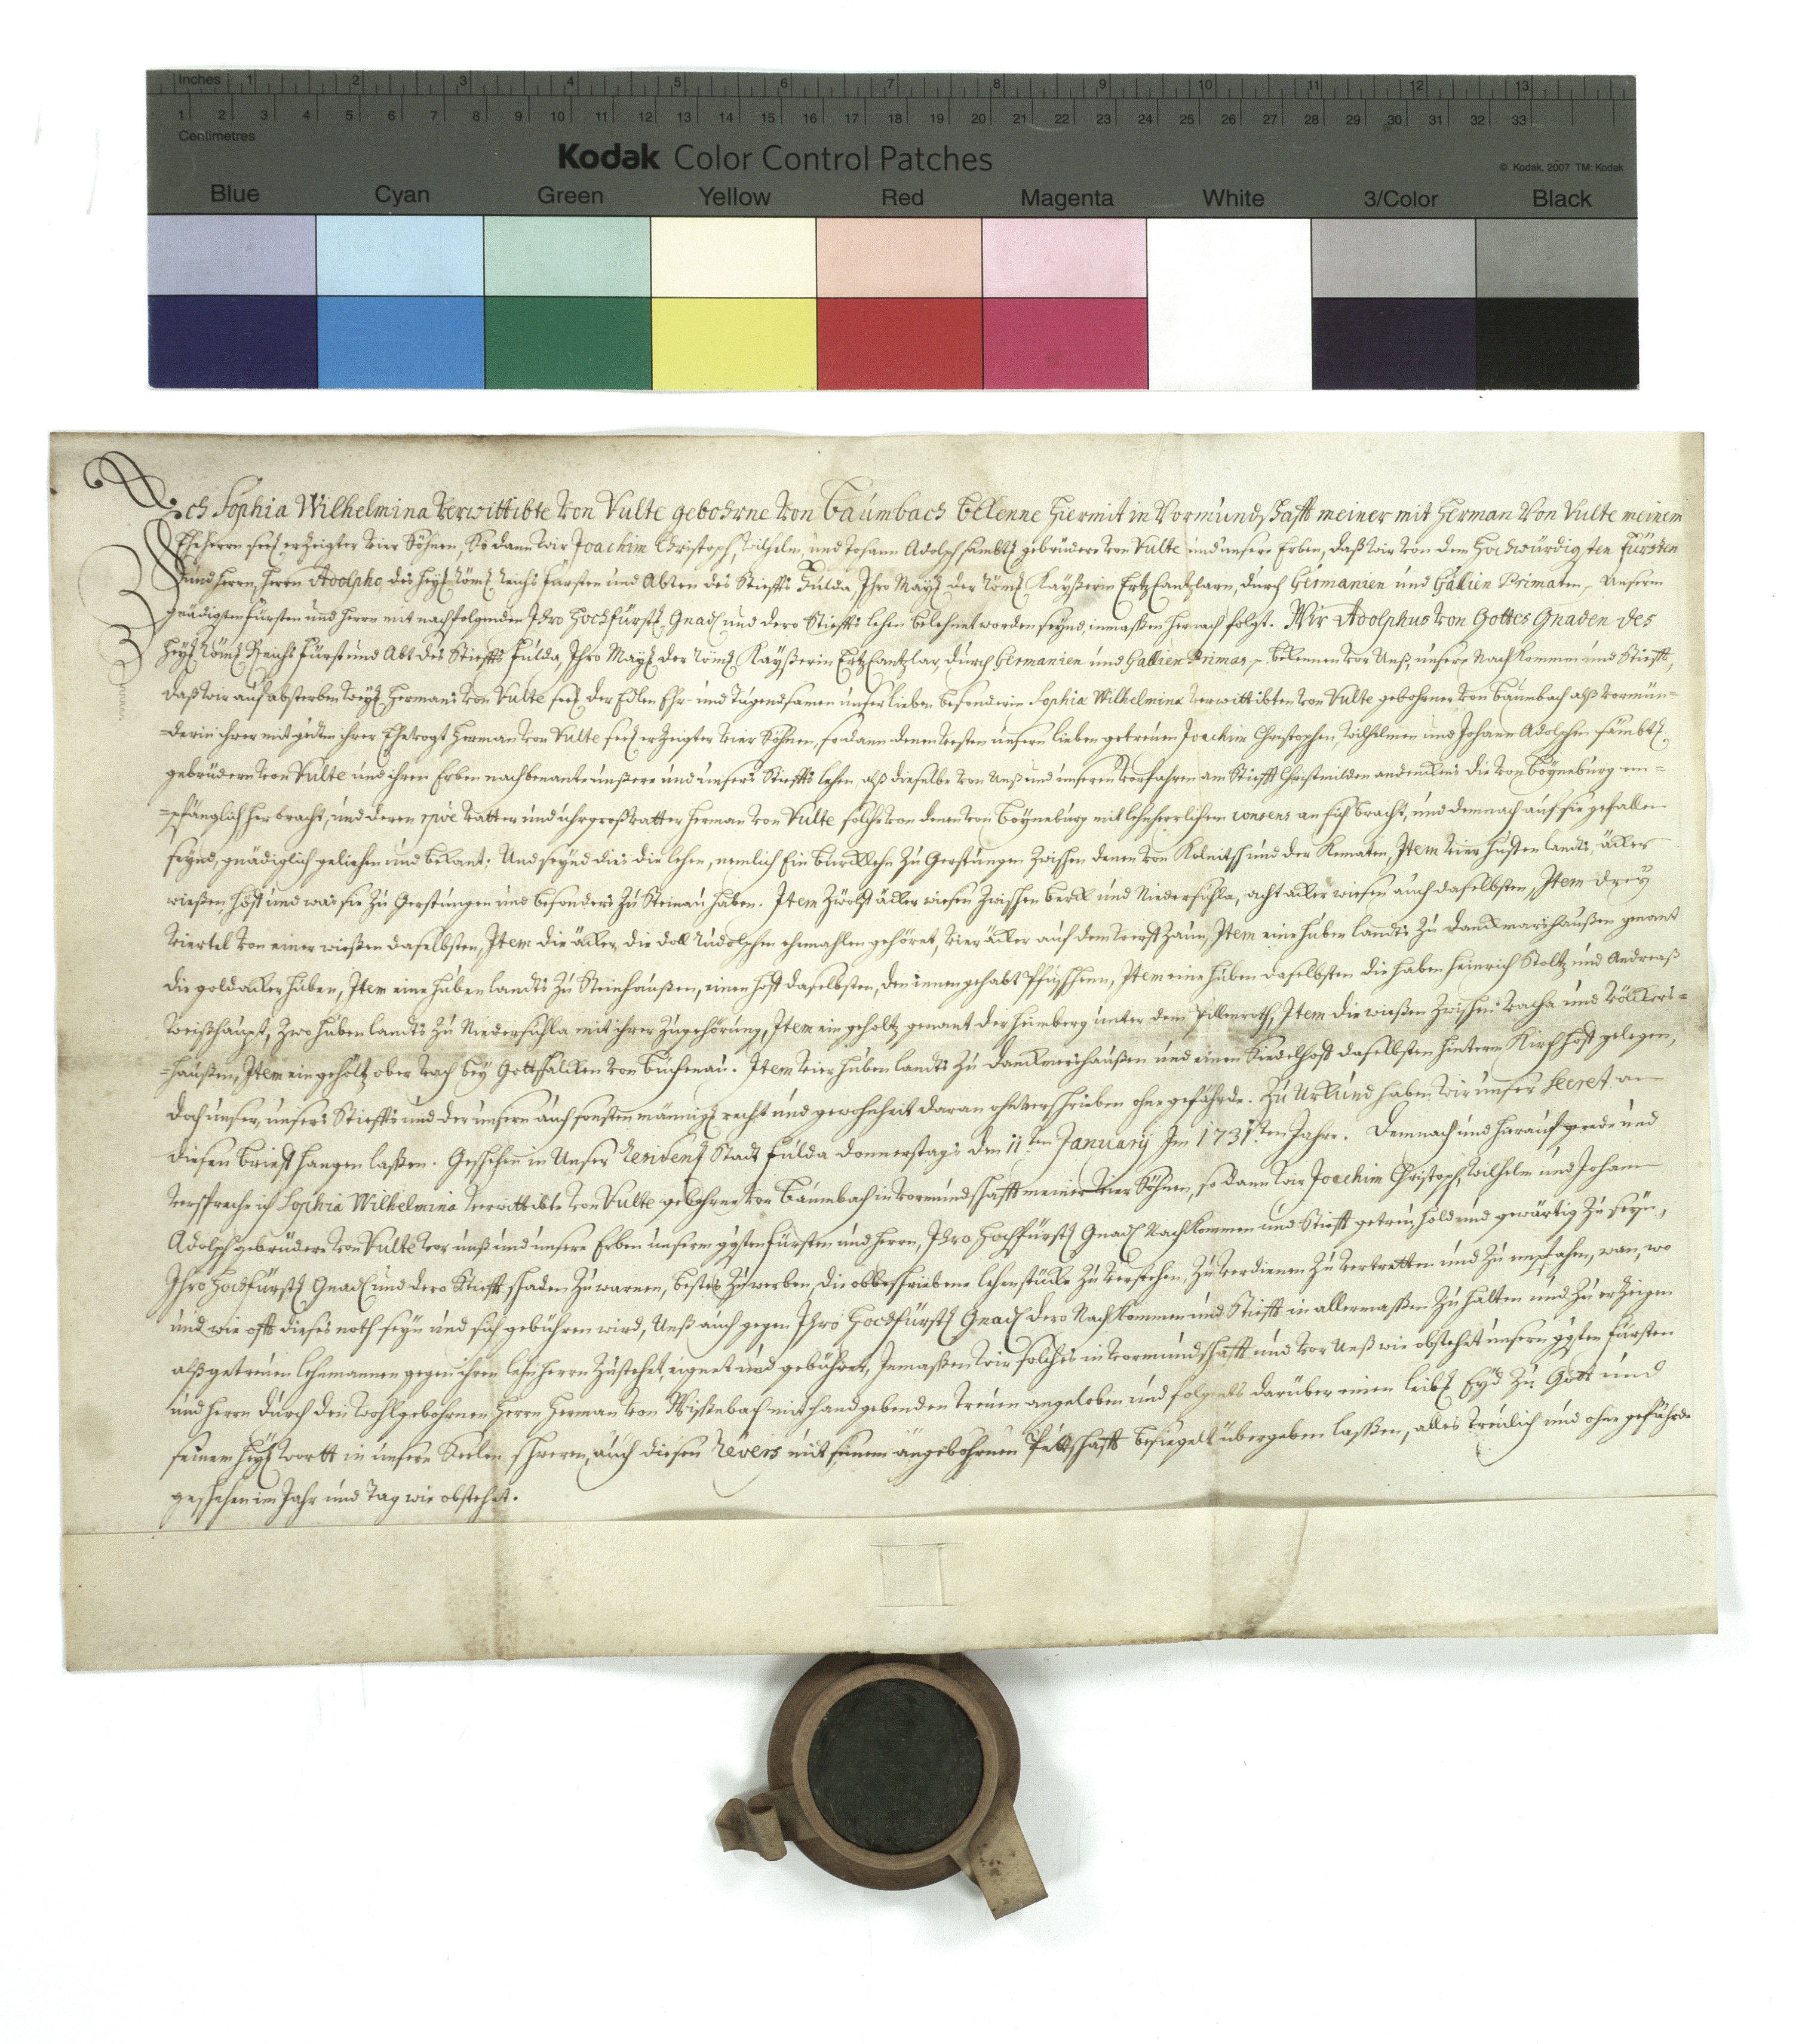 Inches 1 2 3 4 5 6 7 8 9 10 11 12 13
1 2 3 4 5 6 7 8 9 10 11 12 13 14 15 16 17 18 19 20 21 22 23 24 25 26 27 28 29 30 31 32 33
Centimetres
Kodak Color Control Patches
© Kodak, 2007 TM: Kodak
Blue Cyan Green Yellow Red Magenta White 3/Color Black
Ich Sophia Wilhelmina verwittibte von Vulte gebohrne von Baumbach bekenne hiermit in Vormundschafft meiner mit Herman von Vulte meinem
Eheherrn seel. erzeigter vier Söhnen, So dann wir Joachim Christoph, Wilhelm, und Johann Adolph sämbtl. gebrüdere von Vulte und unsere Erben, daß wir von dem Hochwürdigsten Fürsten
und Herrn, Herrn Adolpho, des Heyl. Röm. Reichs Fürsten und Abten des Stieffts Fulda, Ihro Mayt. der Röm. Kayßerin Ertz Cantzlarn, durch Germanien und Gallien Primaten, Unserm
gnädigsten Fürsten und Herrn mit nachfolgenden Ihro Hochfürstl. Gnad. und dero Stieffts lehen belehnet worden seynd, inmaßen hernach folgt. Wir Adolphus von Gottes Gnaden des
Heyl. Röm. Reichs Fürst und Abt des Stieffts Fulda, Ihro Mayt. der Röm. Kayßerin Ertz Cantzlar, durch Germanien und Gallien Primas, bekennen vor Unß, unsere Nachkommen und Stiefft,
daß wir auf absterben weyl. Hermans von Vulte seel. der Edlen Ehr- und Tugendsamen unser lieben besonderin Sophia Wilhelmina verwittibten von Vulte gebohrner von Baumbach alß vormün-
derin ihrer mit gedtm ihrer Ehevogt Herman von Vulte seel. erzeigter vier Söhnen, so dann denen Vesten unsern lieben getreuen Joachim Christophen, Wilhelmen und Johann Adolphen sämbtl.
gebrüdern von Vulte und ihren Erben nachbenante unßere und unsers Stieffts lehen, alß dieselbe von Unß und unseren vorfahren am Stiefft Christmilden andenkens die von Boyneburg em-
pfänglich herbracht, und deren vatter und uhrgroßvatter Herman von Vulte solche von denen von Boyneburg mit lehnherrlichem consens an sich bracht, und demnach auf sie gefallen
seynd, gnädiglich geliehen und bekant; Und seynd dies die lehen, nemlich Ein Burcklehn zu Gerstungen zwischen denen von Kolmitsch und der Kematen, Item vier hufen landts, äcker
wießen, höf und was sie zu Gerstungen und besonders zu Steinau haben. Item zwölff äcker wiesen zwischen Berk und Niedersuhla, acht acker wiesen auch daselbsten, Item drey
viertel von einer wießen daselbsten, Item die äcker, die doll Rudolphen ehemahlen gehöret, vier äcker auf dem Zaun, Item eine huben landts zu Danckmarshaußen genant
die goldacker huben, Item eine huben landts zu Steinhaußen, einen hoff daselbsten, den innen gehabt, Item eine huben daselbsten die haben Heinrich Stoltz und Andreaß
Weißhaupt, zwo huben landts zu Niedersuhla mit ihrer Zugehörung, Item ein geholtz, genant der humberg unter dem Pillenroth, Item die wießen zwischen Vacha und Völckers-
haußen, Item ein geholtz ober Vach bey Gottschalcken von Buchenau. Item vier huben landts zu Danckmershaußen und einen Siedelhoff daselbsten hinterm Kirchhoff gelegen,
doch unser, unsers Stieffts und der unsern auch sonsten männigl. recht und gewohnheit daran ohnverschrieben ohne gefährde. Zu Urkund haben wir unser Secret an
diesen brieff hangen laßen. Geschehen in Unser Residentz Stadt Fulda Donnerstags den 11ten January Im 1731sten Jahre. Demnach und hierauf gerede und
verspreche ich Sophia Wilhelmina verwittibte von Vulte gebohrne von Baumbach in vormundschafft meiner vier Söhnen, so dann wir Joachim Christoph, Wilhelm und Johann
Adolph gebrüdere von Vulte vor unß und unsere Erben unserm ggsten Fürsten und Herrn, Ihro Hochfürstl. Gnad. Nachkommen und Stiefft getreu, hold und gewärtig zu seyn,
Ihro Hochfürstl. Gnad. und dero Stiefft schaden zu warnen, bestes zu werben, die obbeschriebene lehenstücke zu versehen, zu verdienen zu vertretten und zu empfahen, wan, wo
und wie offt dieses noth seyn und sich gebühren wird, Unß auch gegen Ihro Hochfürstl. Gnad. dero Nachkommen und Stiefft in allermaßen zu halten und zu erzeigen
alß getreuen lehenmannen gegen ihren lehnherrn zustehet, eignet und gebühret, Inmaßen wir solches in vormundschafft und vor Unß wie obstehet unsern ggsten Fürsten
und Herrn durch den Wohlgebohrnen Herrn Herman von Wißenbach mit handgebenden treuen angeloben und folgends darüber einen leibl. Eyd zu Gott und
seinem heyl. wortt in unsere Seelen schweren, auch diesen Revers mit seinem angebohrnen Pettschafft besiegelt übergeben lassen, alles treulich und ohne gefährde
geschehen im Jahr und Tag wie obstehet.